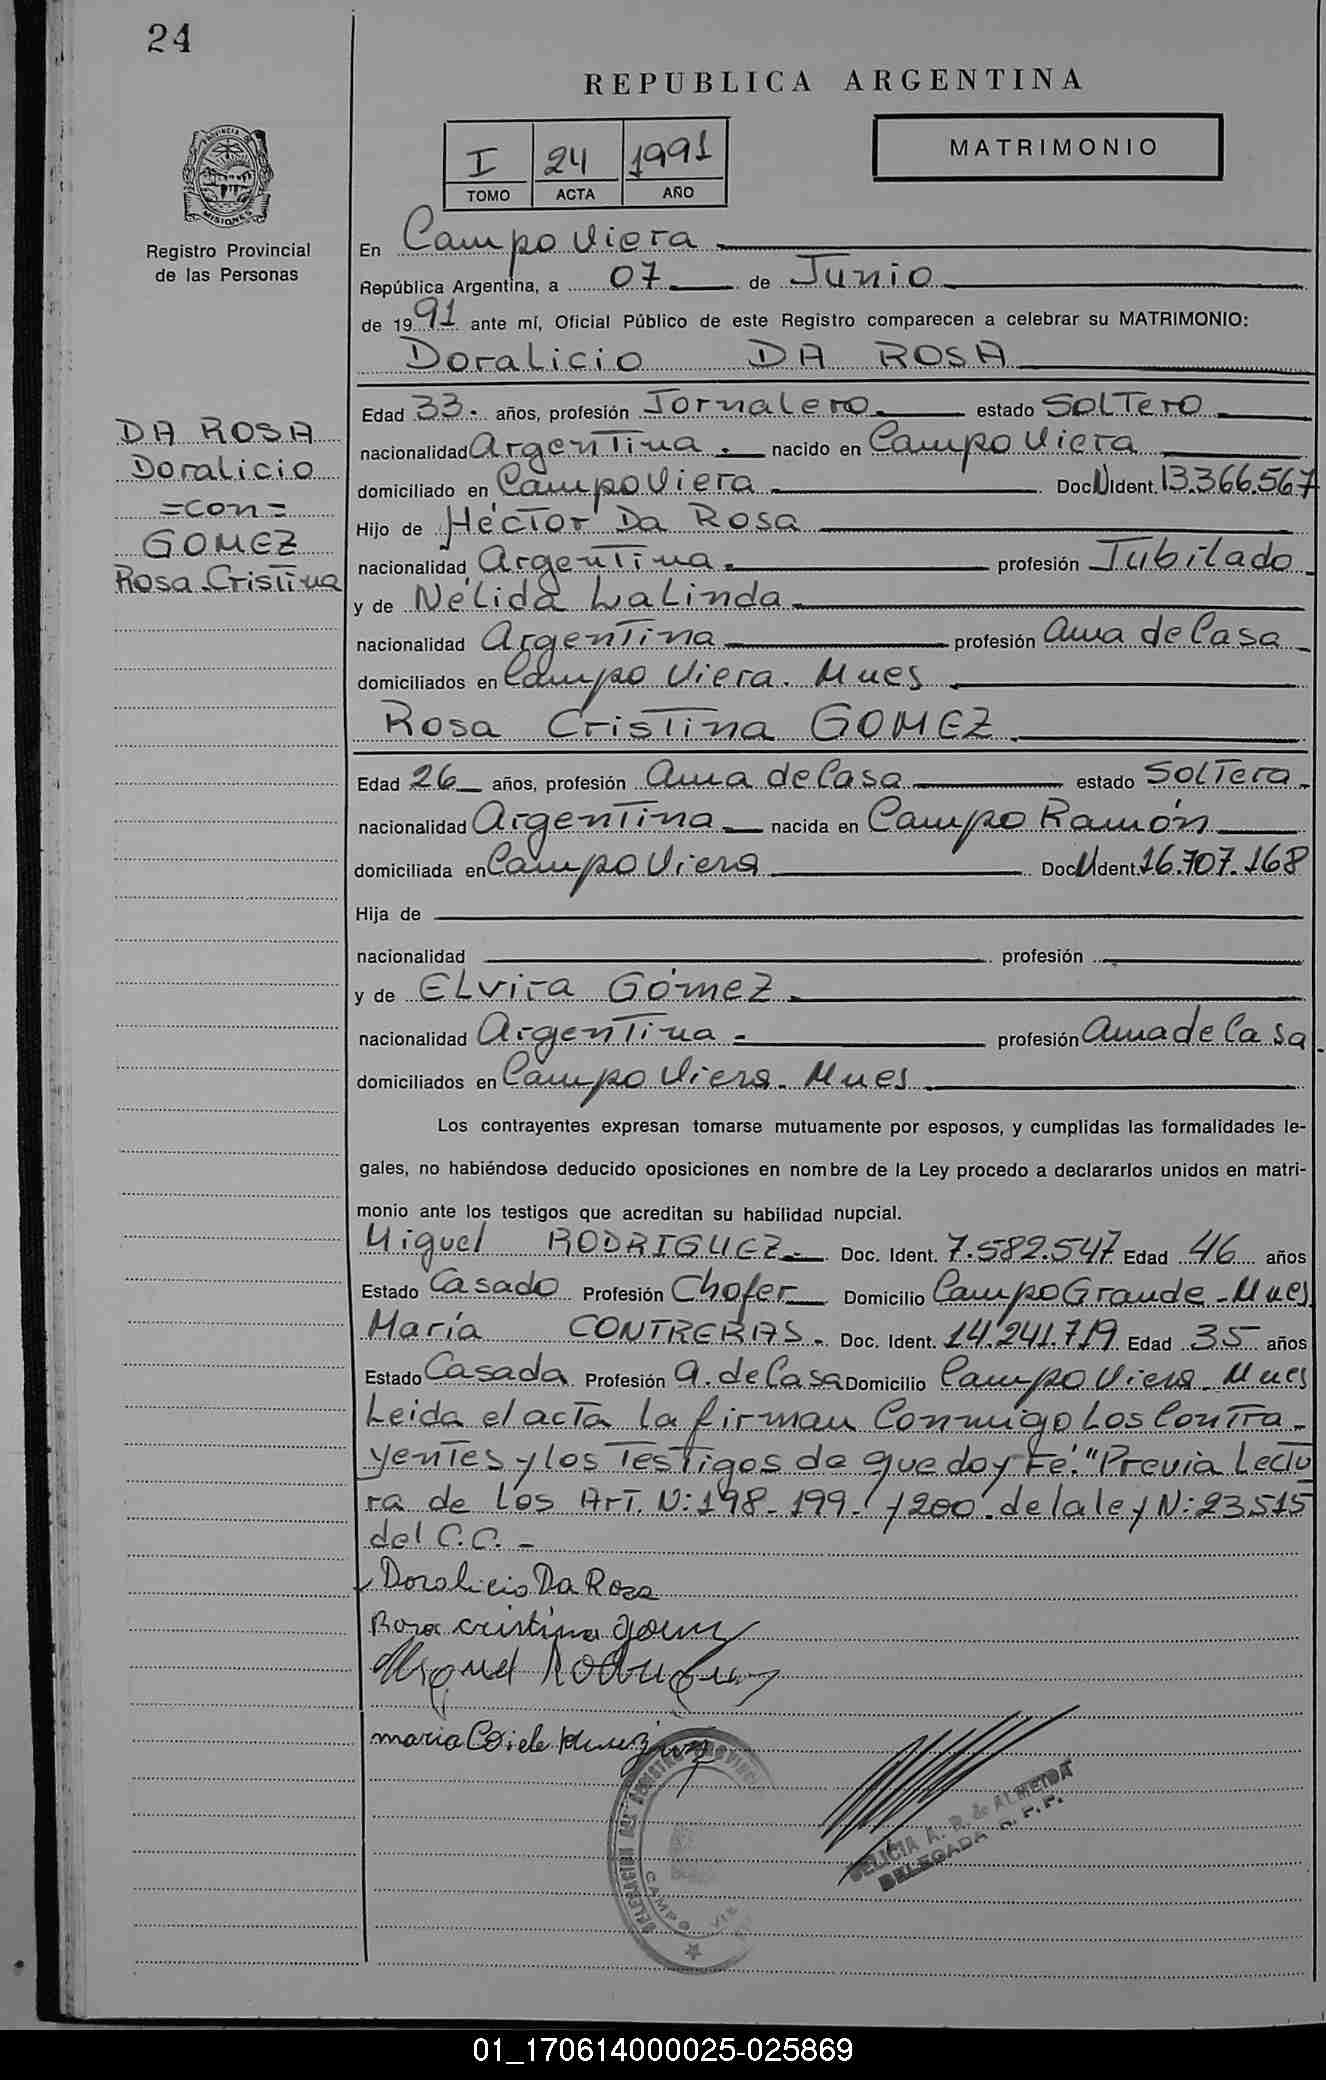 24
REPUBLICA ARGENTINA
MATRIMONIO
I 24 1991
TOMO ACTA AÑO
PROVINCIA DE
MISIONES
Registro Provincial
de las Personas
En Campo Viera
República Argentina, a 07 de Junio
de 1991 ante mí, Oficial Público de este Registro comparecen a celebrar su MATRIMONIO:
Doralicio DA ROSA
DA ROSA
Doralicio
=con=
GOMEZ
Rosa Cristina
Edad 33. años, profesión Jornalero. estado Soltero
nacionalidad Argentina. nacido en Campo Viera
domiciliado en Campo Viera Doc N Ident. 13.366.567
Hijo de Héctor Da Rosa
nacionalidad Argentina. profesión Jubilado
y de Nélida Lalinda
nacionalidad Argentina profesión Ama de Casa
domiciliados en Campo Viera. Mnes
Rosa Cristina GOMEZ
Edad 26 años, profesión Ama de Casa estado Soltera
nacionalidad Argentina nacida en Campo Ramón
domiciliada en Campo Viera Doc N Ident. 16.707.168
Hija de
nacionalidad profesión
y de Elvira Gómez
nacionalidad Argentina. profesión Ama de Casa
domiciliados en Campo Viera. Mnes
Los contrayentes expresan tomarse mutuamente por esposos, y cumplidas las formalidades le-
gales, no habiéndose deducido oposiciones en nombre de la Ley procedo a declararlos unidos en matri-
monio ante los testigos que acreditan su habilidad nupcial.
Miguel RODRIGUEZ. Doc. Ident. 7.582.547 Edad 46 años
Estado Casado Profesión Chofer Domicilio Campo Grande - Mnes
María CONTRERAS. Doc. Ident. 14.241.719 Edad 35 años
Estado Casada Profesión A. de Casa Domicilio Campo Viera. Mnes
Leida el acta la firman Conmigo Los Contra-
yentes y los Testigos de que doy Fé. "Previa Lectu
ra de Los Art. N: 198-199- y 200. de la ley N: 23.515
del C.C.-
Doralicio Da Rosa
Rosa cristina gomez
Miguel Rodriguez
maria
DELEGACION DEL REGISTRO PROVINCIAL
CAMPO VIE
DELICIA A. R. de ALMEIDA
DELEGADA R. P. P.
01_170614000025-025869